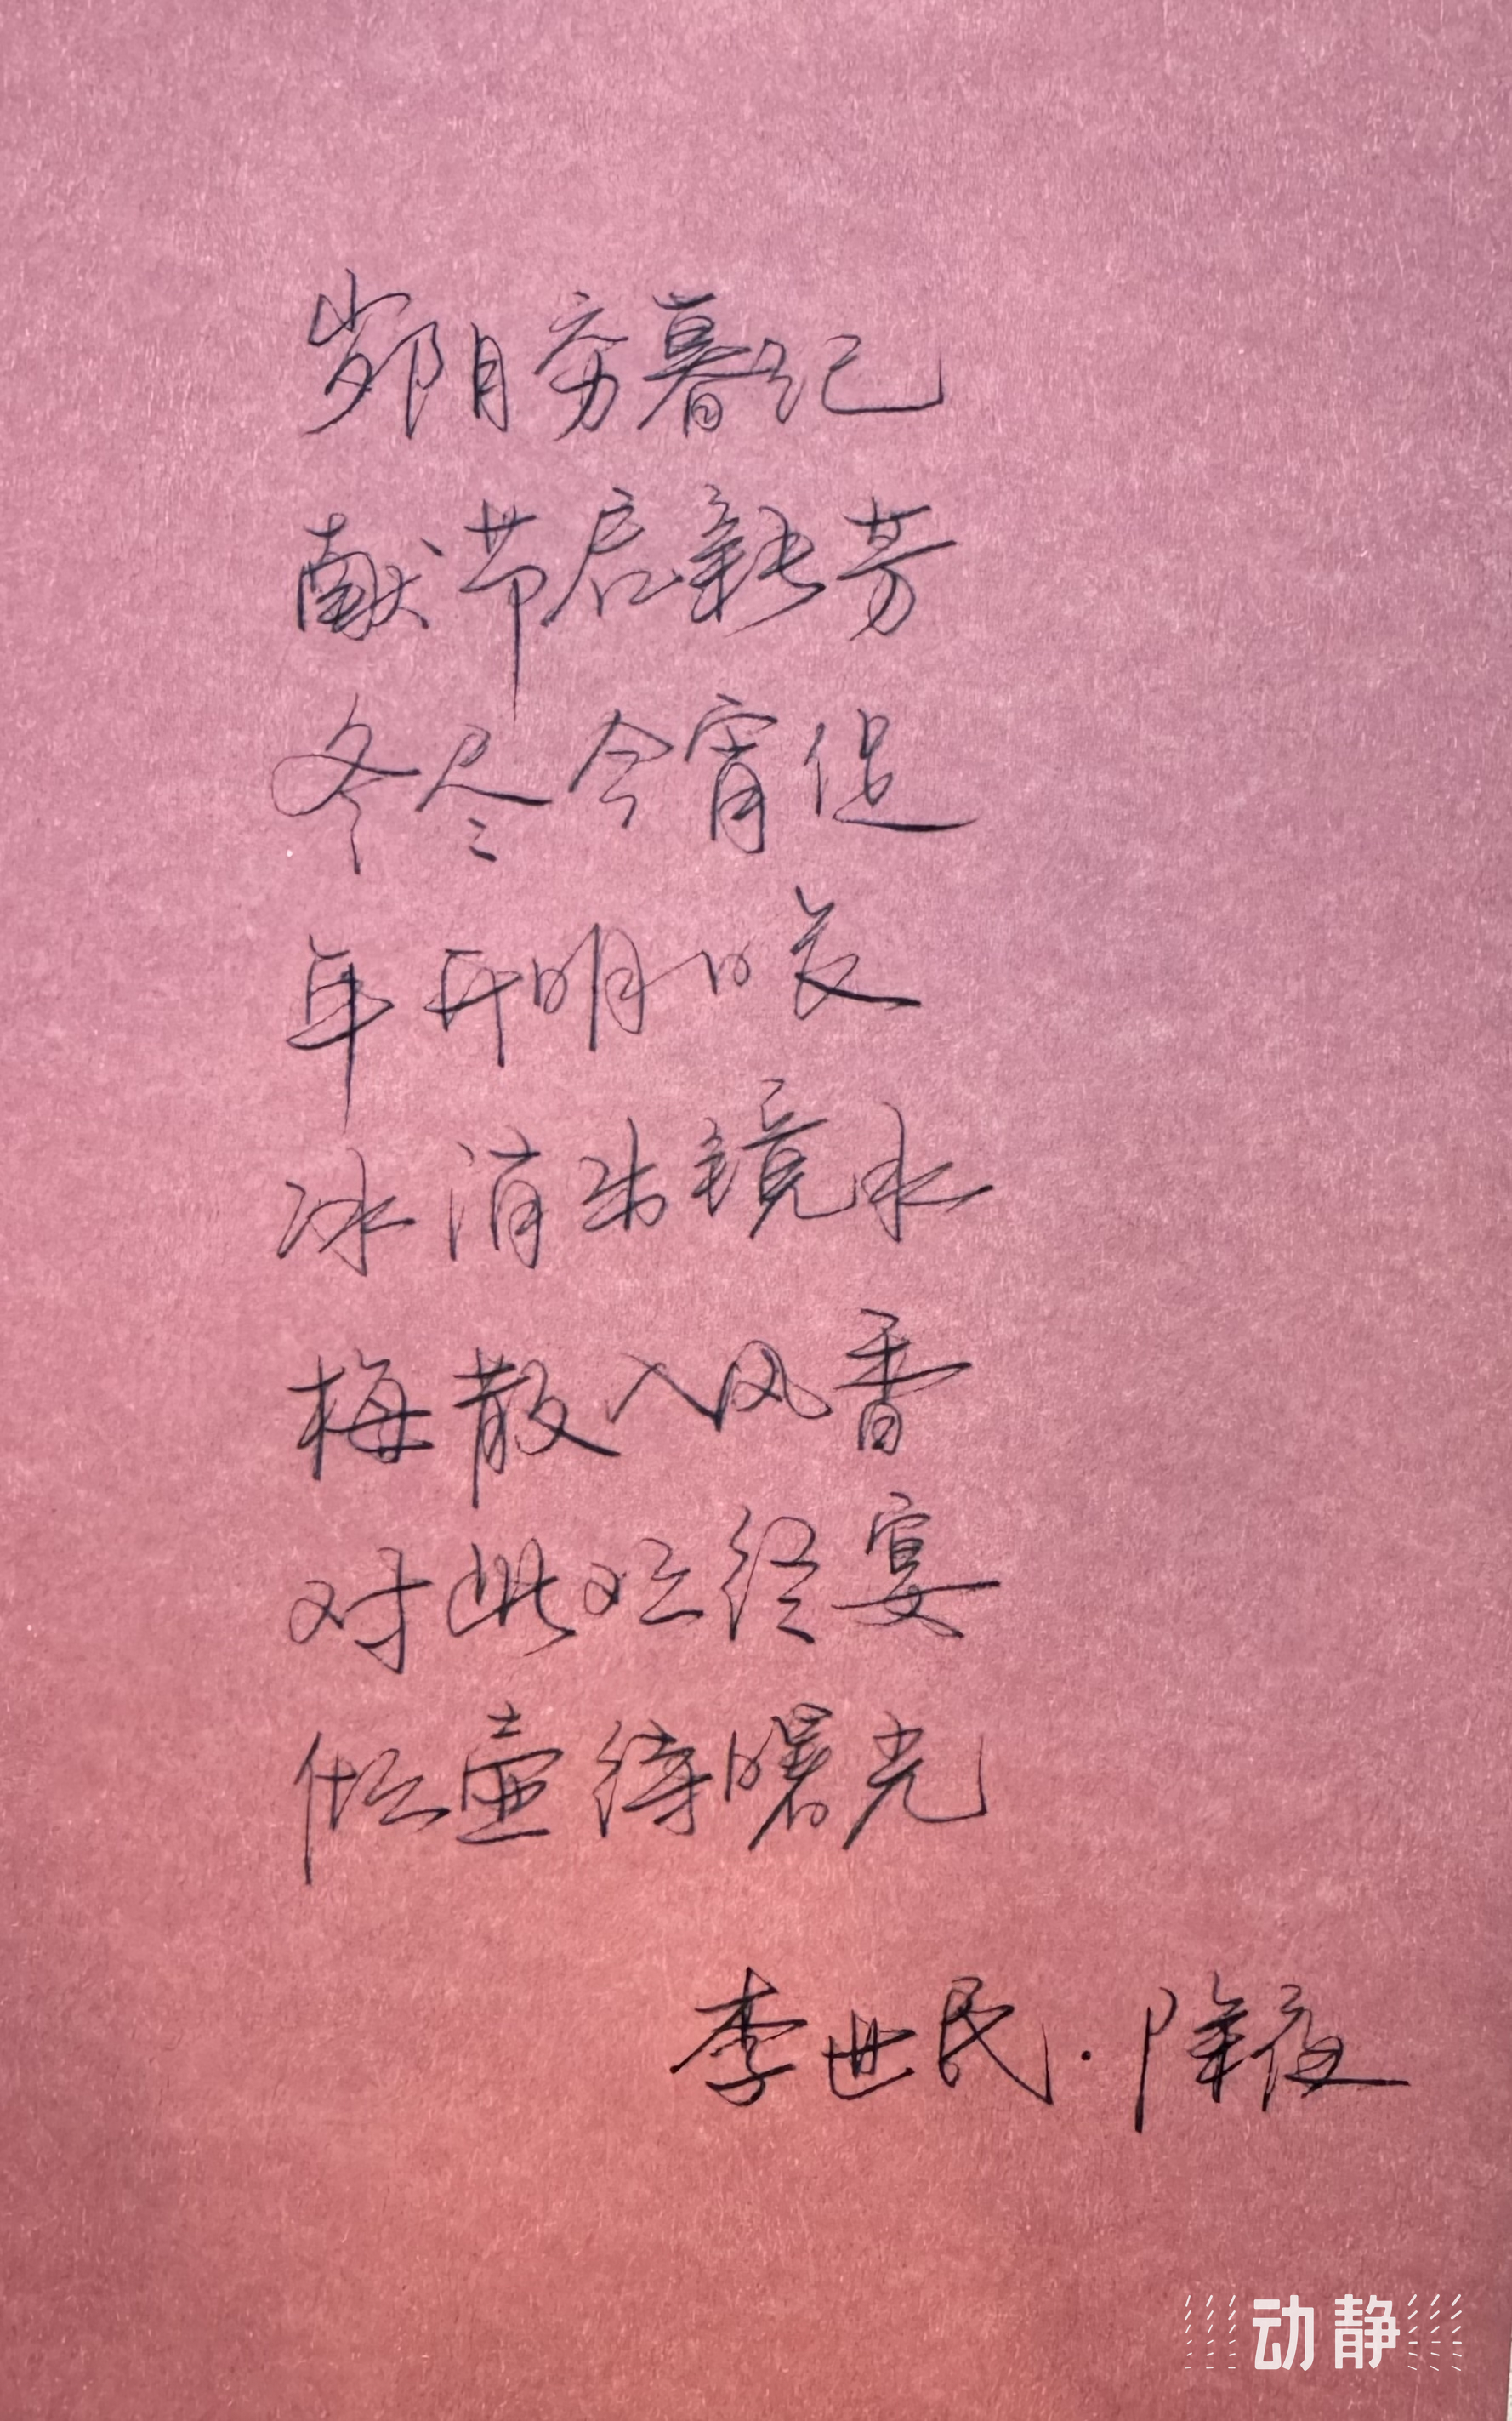 岁阴穷暮纪
献节启新芳
冬尽今宵促
年开明日长
冰消出镜水
梅散入风香
对此欢终宴
倾壶待曙光
李世民·除夜
动静